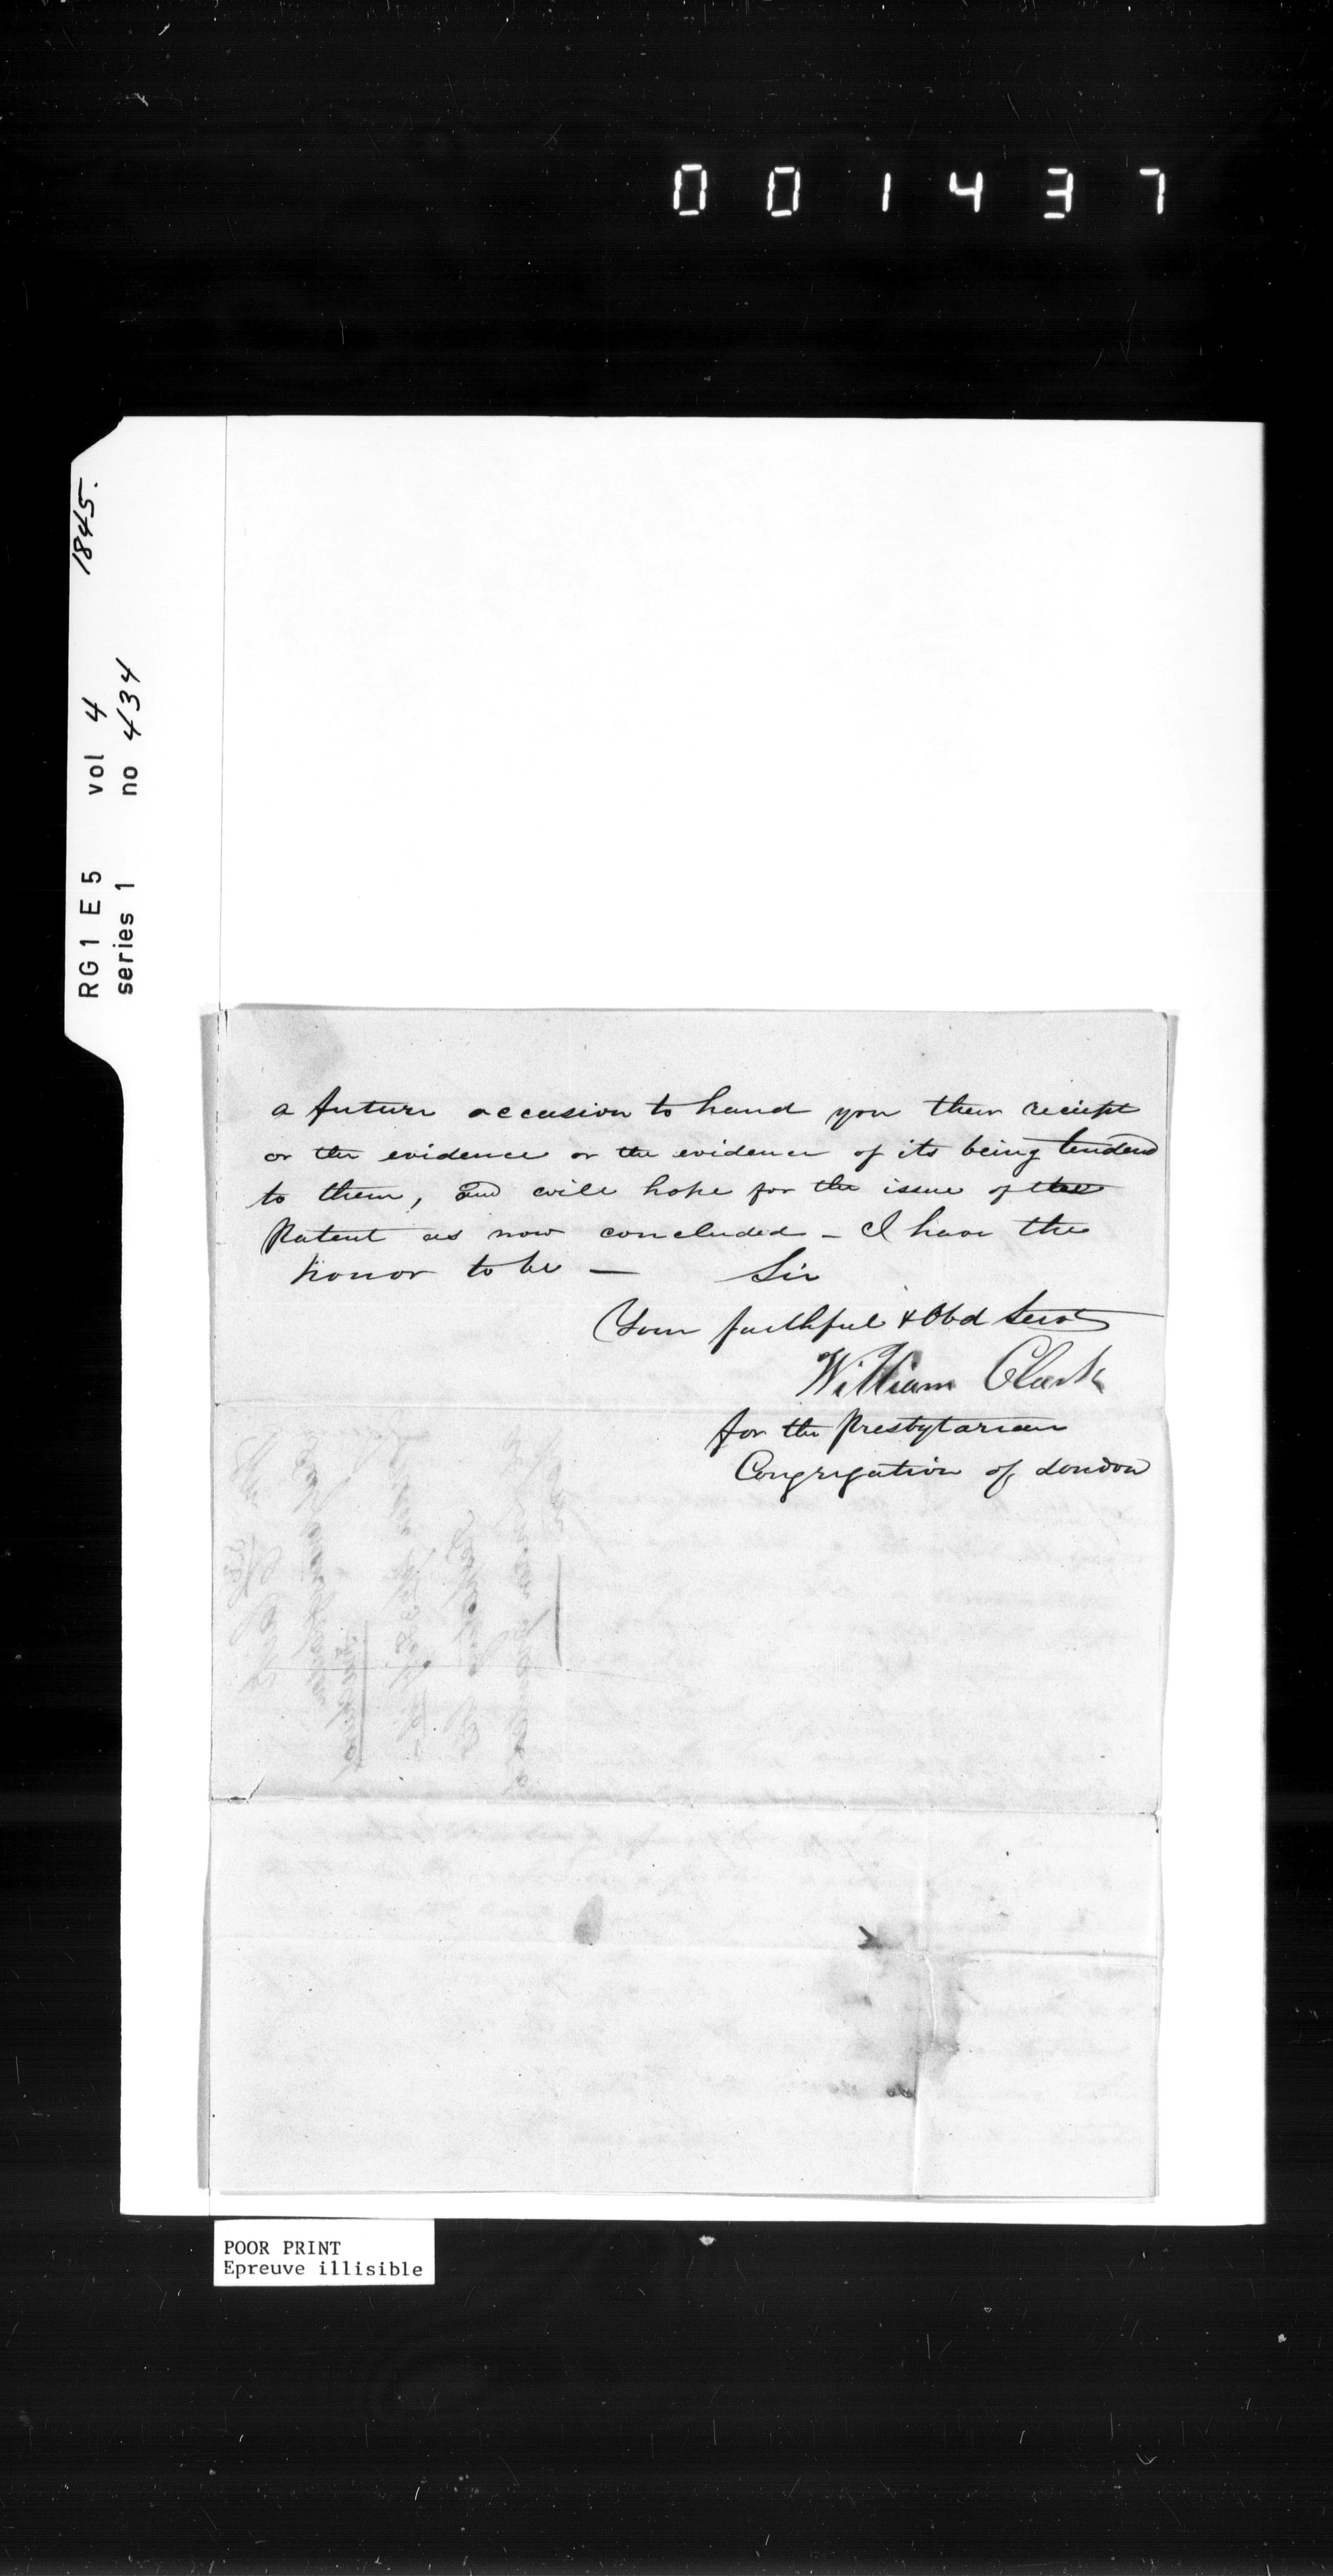 001437
1845.
RG1 E5 vol 4
series 1 no 434
a future occasion to hand you their reciept
or the evidence or the evidence of its being tendered
to them, and will hope for the issue of the
Patent as now concluded - I have the
honor to be — Sir
Your faithful & Obd Servt
William Clark
for the Presbytarian
Congregation of London
POOR PRINT
Epreuve illisible